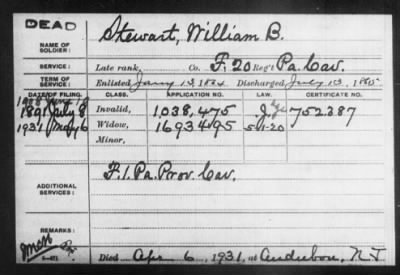 DEAD
NAME OF SOLDIER: Stewart, William B.
SERVICE: Late rank, Co. F. 20 Reg't Pa. Cav.
TERM OF SERVICE: Enlisted Jany 1864 Discharged July 13, 1865
DATE OF FILING. CLASS. APPLICATION NO. LAW. CERTIFICATE NO.
1908 June
1891 July 8 Invalid, 1,038,475 752387
1931 May 6 Widow, 1693495 5-1-20
Minor,
ADDITIONAL SERVICES: F. 1. Pa. Prov. Cav.
REMARKS:
Died Apr 6, 1931, at Audubon, N.J.